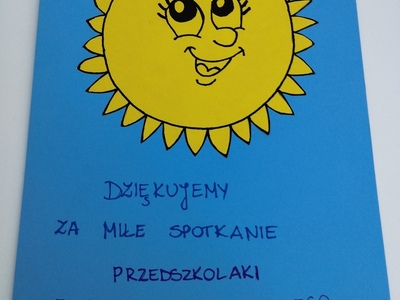 DZIĘKUJEMY
ZA MIŁE SPOTKANIE
PRZEDSZKOLAKI